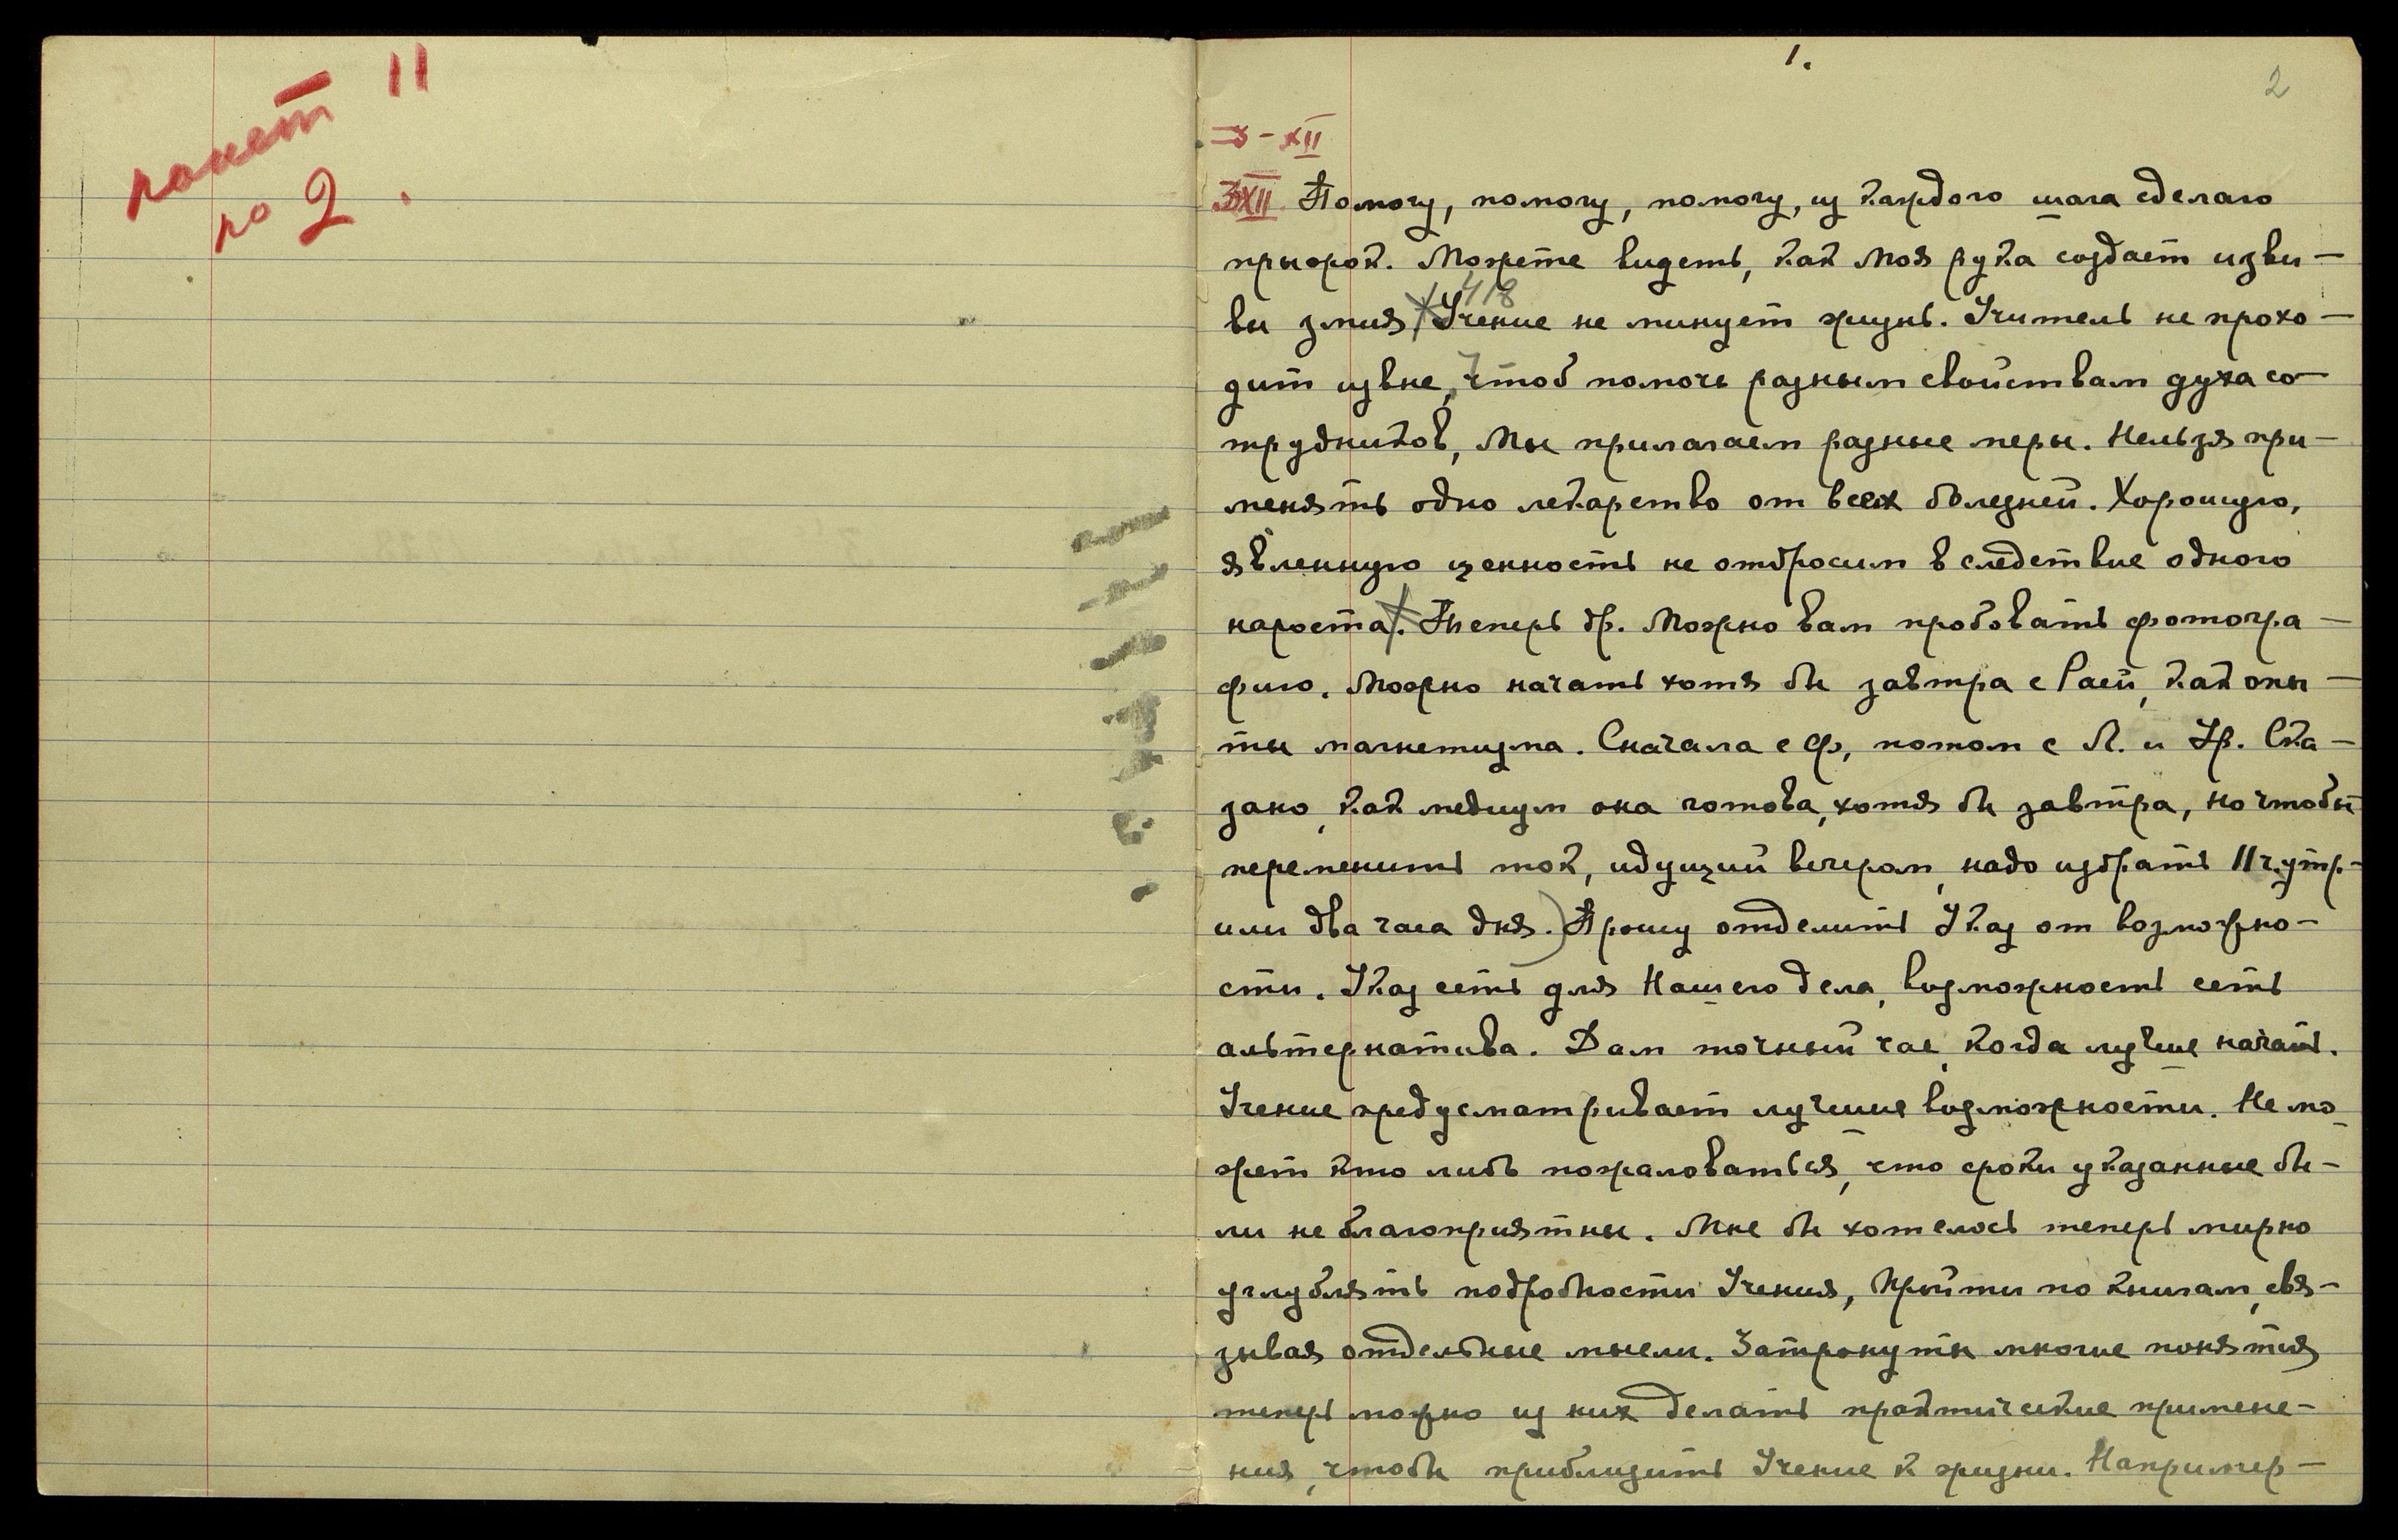 11
по 2.
1.
2
З-XII
3XII Помогу, помогу, помогу, из каждого шага сделаю
прыжок. Можете видеть, как Моя рука создает изви-
418
вы змия. Учение не минует жизнь. Учитель не прохо-
дит извне, чтоб помочь разным свойствам духа со-
трудников, Мы прилагаем разные меры. Нельзя при-
менять одно лекарство от всех болезней. Хорошую,
явленную ценность не отбросим вследствие одного
нароста. Теперь др. Можно вам пробовать фотогра-
фию. Можно начать хотя бы завтра с Раей, как опы-
ты магнетизма. Сначала с Ф, потом с Л. и Ур. Ска-
зано, как медиум она готова, хотя бы завтра, но чтобы
переменить ток, идущий вечером, надо избрать 11 ч. утр.
или два часа дня.) Прошу отделить Указ от возможно-
сти. Указ есть для Нашего дела, возможность есть
альтернатива. Дам точный час, когда лучше начать.
Учение предусматривает лучшие возможности. Не мо-
жет кто либо пожаловаться, что сроки указанные бы-
ли не благоприятны. Мне бы хотелось теперь мирно
углублять подробности Учения, Пройти по книгам, свя-
зывая отдельные мысли. Затронуты многие понятия
теперь можно из них делать практические примене-
ния, чтобы приблизить Учение к жизни. Например-